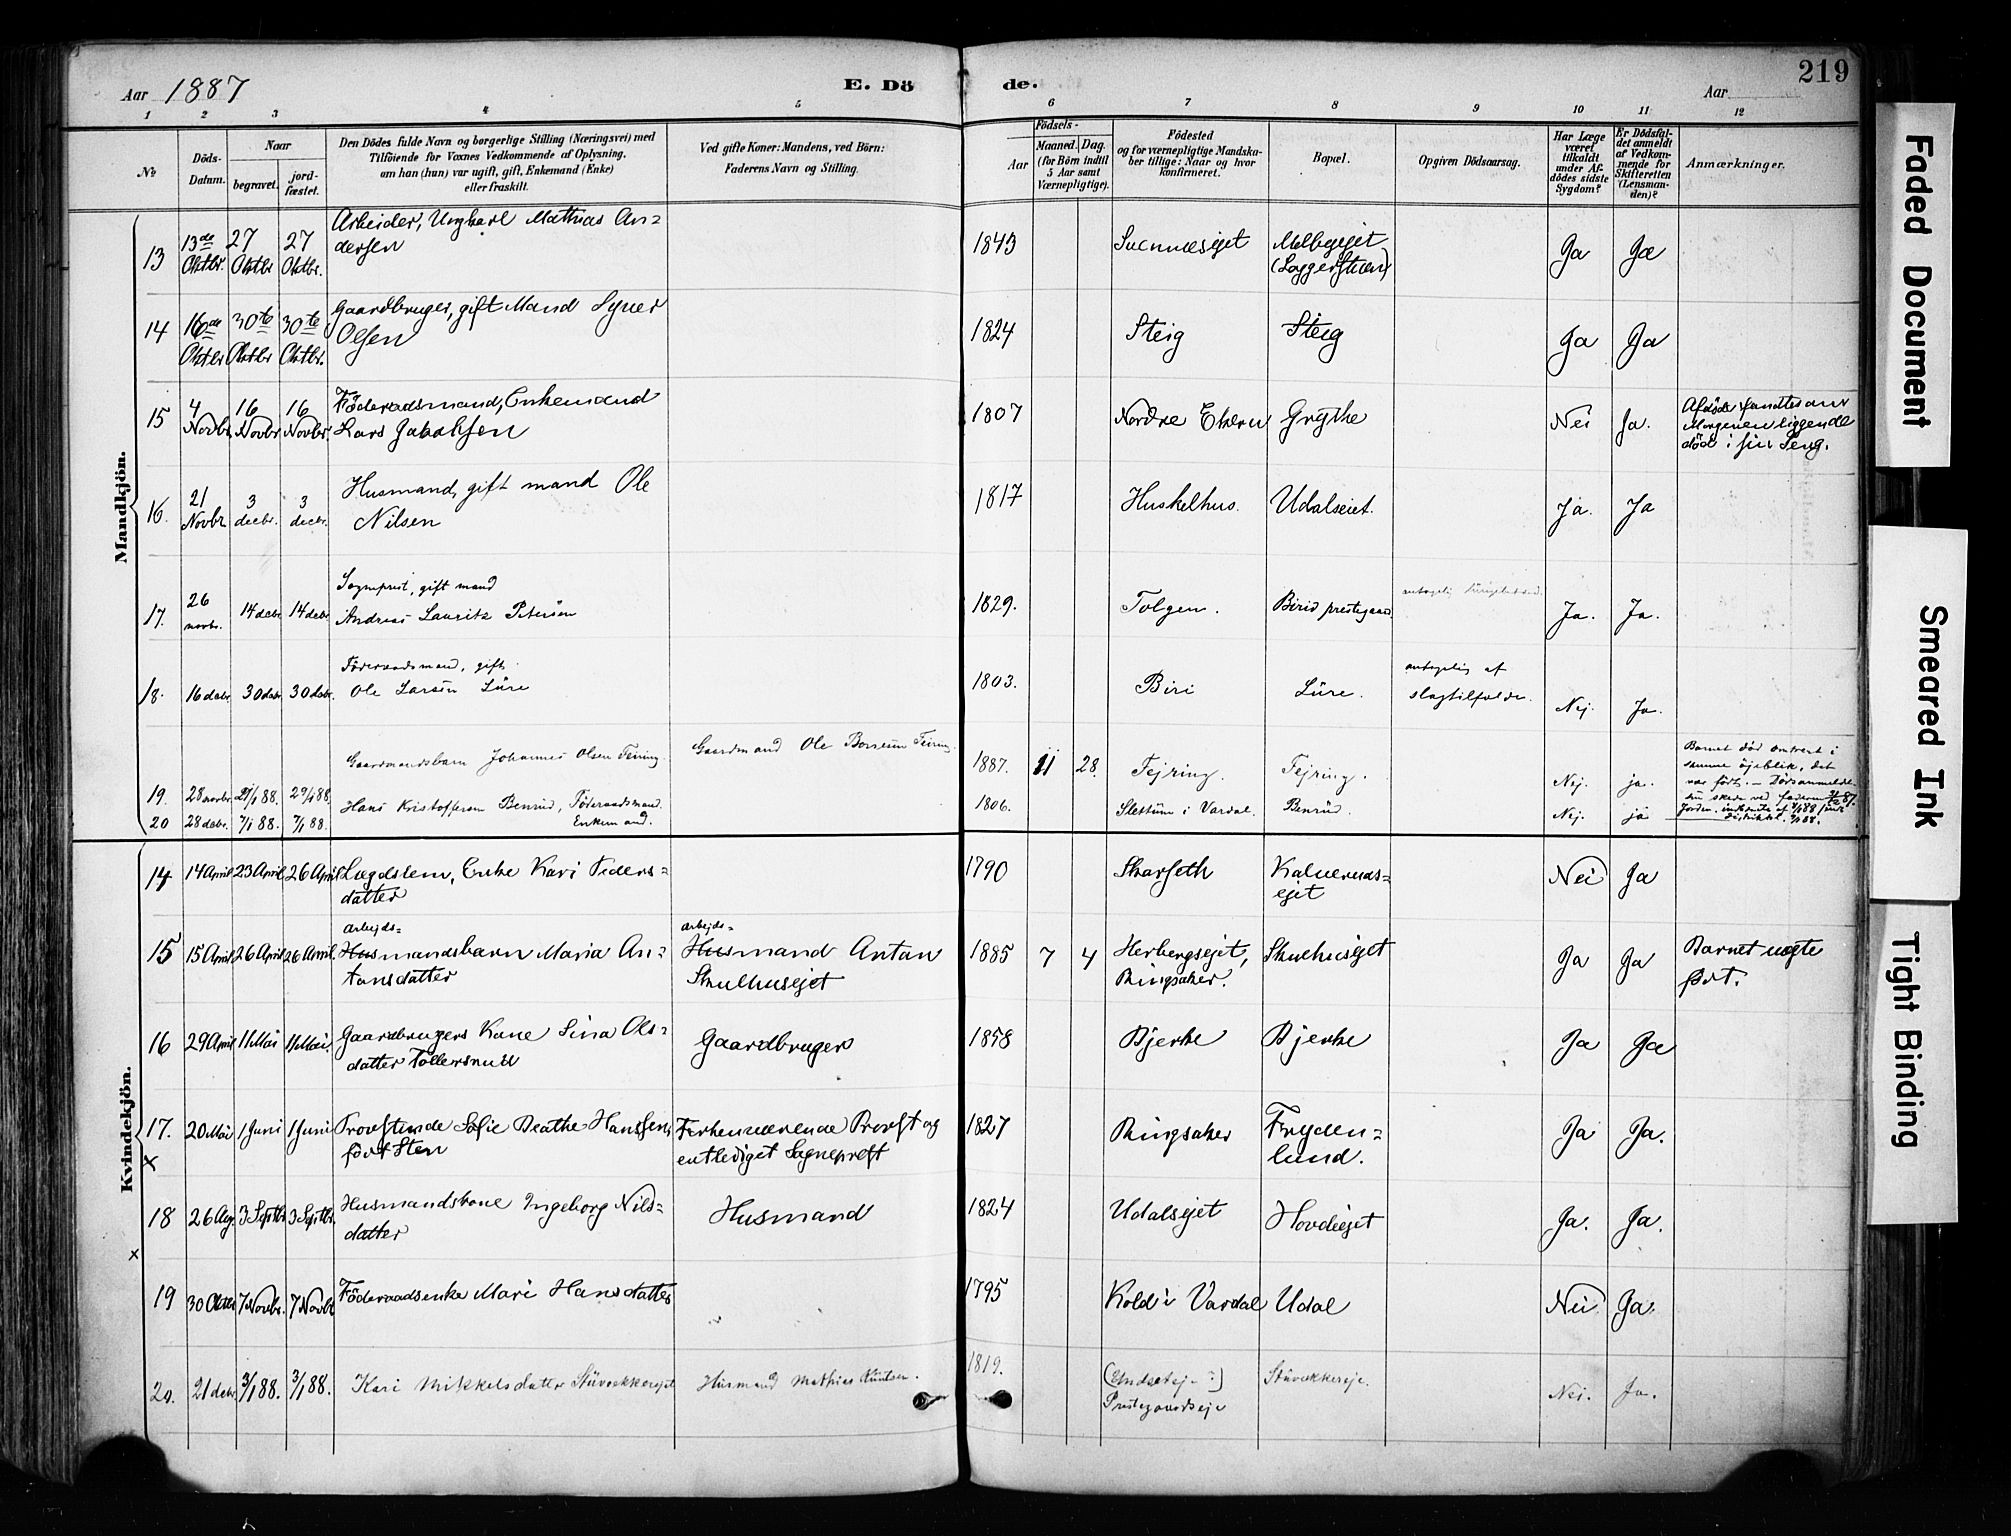 Aar 1887
E. Dö
de.
Aar
219
1 2 3 4 5 6 7 8 9 10 11 12
No
Döds-Datum.
Naar
begravet.
jord-fæstet.
Den Dödes fulde Navn og borgerlige Stilling (Næringsvei) med
Tilföiende for Voxnes Vedkommende af Oplysning,
om han (hun) var ugift, gift, Enkemand (Enke)
eller fraskilt.
Ved gifte Koner: Mandens, ved Börn:
Faderens Navn og Stilling.
Födsels-
Aar
Maaned. Dag.
(for Börn indtil
5 Aar samt
Værnepligtige).
Födested
og for værnepligtige Mandska-
ber tillige: Naar og hvor
konfirmeret.
Bopæl.
Opgiven Dödsaarsag.
Har Læge
været
tilkaldt
under Af-
dödes sidste
Sygdom?
Er Dödsfal-
det anmeldt
af Vedkom-
mende for
Skifteretten
(Lensman-
den)?
Anmærkninger.
Mandkjön.
13 13de Oktbr. 27 Oktbr 27 Oktbr. Arbeider, Ungkarl Mathias An=
dersen 1843 Svennæsejet Melbyejet Ja Ja
14 16de Oktbr 30te Oktbr 30te Oktbr. Gaardbruger, gift Mand Syver
Olsen 1824 Steig Steig Ja Ja
15 4 Novbr. 16 Novbr 16 Novbr. Föderaadsmand, Enkemand
Lars Jakobsen 1807 Nordre Ekern Grythe Nei Ja. Afdöde fandtes om
Morgenen liggende
död i sin Seng.
16. 21 Novbr 3 decbr. 3 decbr. Husmand, gift mand Ole
Nilsen 1817 Huskelhus. Udalseiet. Ja. Ja
17. 26 novbr. 14 decbr 14 decbr Sogneprest, gift mand
Andreas Lauritz Petersen 1829. Tolgen. Birid prestegaard antagelig Ja. Ja.
18. 16 decbr. 30 decbr. 30 decbr. Föderaadsmand, gift.
Ole Larsen Lüre 1803. Biri Lüre. antagelig af
slagtilfælde. Nej. Ja.
19. 28 novbr. 29/1 88. 29/1 88. Gaardmandsbarn Johannes Olsen Feiring Gaardmand Ole Feiring. 1887. 11 28. Fejring. Fejring. Nej. ja. Barnet död omtrent i
samme öjeblik, det
var födt. — Dödsanmeldel-
20 28 decbr. 7/1 88. 7/1 88. Hans Kristoffersen Benrud, Föderaadsmand.
Enkemand. 1806. Slettum i Vardal. Benrüd. Nej. ja
Kvindekjön.
14 14 April 23 April 26 April Lægdslem, Enke Kari Peders=
datter 1790 Skarseth Kalverud=
ejet Nei Ja
15 15 April 26 April 26 April. arbejds=
Husmandsbarn Maria An=
tonsdatter arbejds=
Husmand Anton
Skulhusejet 1885 7 4 Herbergsejet,
Ringsaker. Skulhusejet Ja Ja Barnet uægte
födt.
16 29 April 11 Mai 11 Mai. Gaardbrugers Kone Lina Ols=
datter Tollersrud Gaardbruger 1858 Bjerke Bjerke Ja Ja
17. 20 Mai 1 Juni 1 Juni Provstinde Sofie Beathe Hanssen,
födt Sten Forhenværende Provst og
entlediget Sogneprest 1827 Ringsaker Fryden=
lund. Ja Ja.
x
18 26 Aug. 3 Septbr. 3 Septbr. Husmandskone Ingeborg Nils=
datter Husmand 1824 Udalsejet Hovdeejet Ja. Ja.
x
19 30 Oktbr 7 Novbr. 7 Novbr Föderaadsenke Mari Hansdatter 1795 Kold i Vardal Udal Nei. Ja.
20. 21 decbr. 3/1 88. 3/1 88. Kari Mikkelsdatter Stüvækkerejet Husmand Mathias Knutsen. 1819.
Prestegaardseje Stüvækkereje. Nei. Ja.
Faded Document
Smeared Ink
Tight Binding